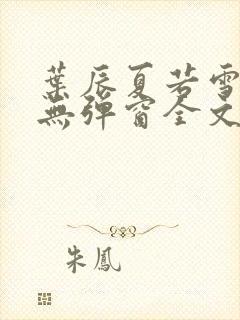 葉辰夏若雪
無彈窗全文
朱鳳